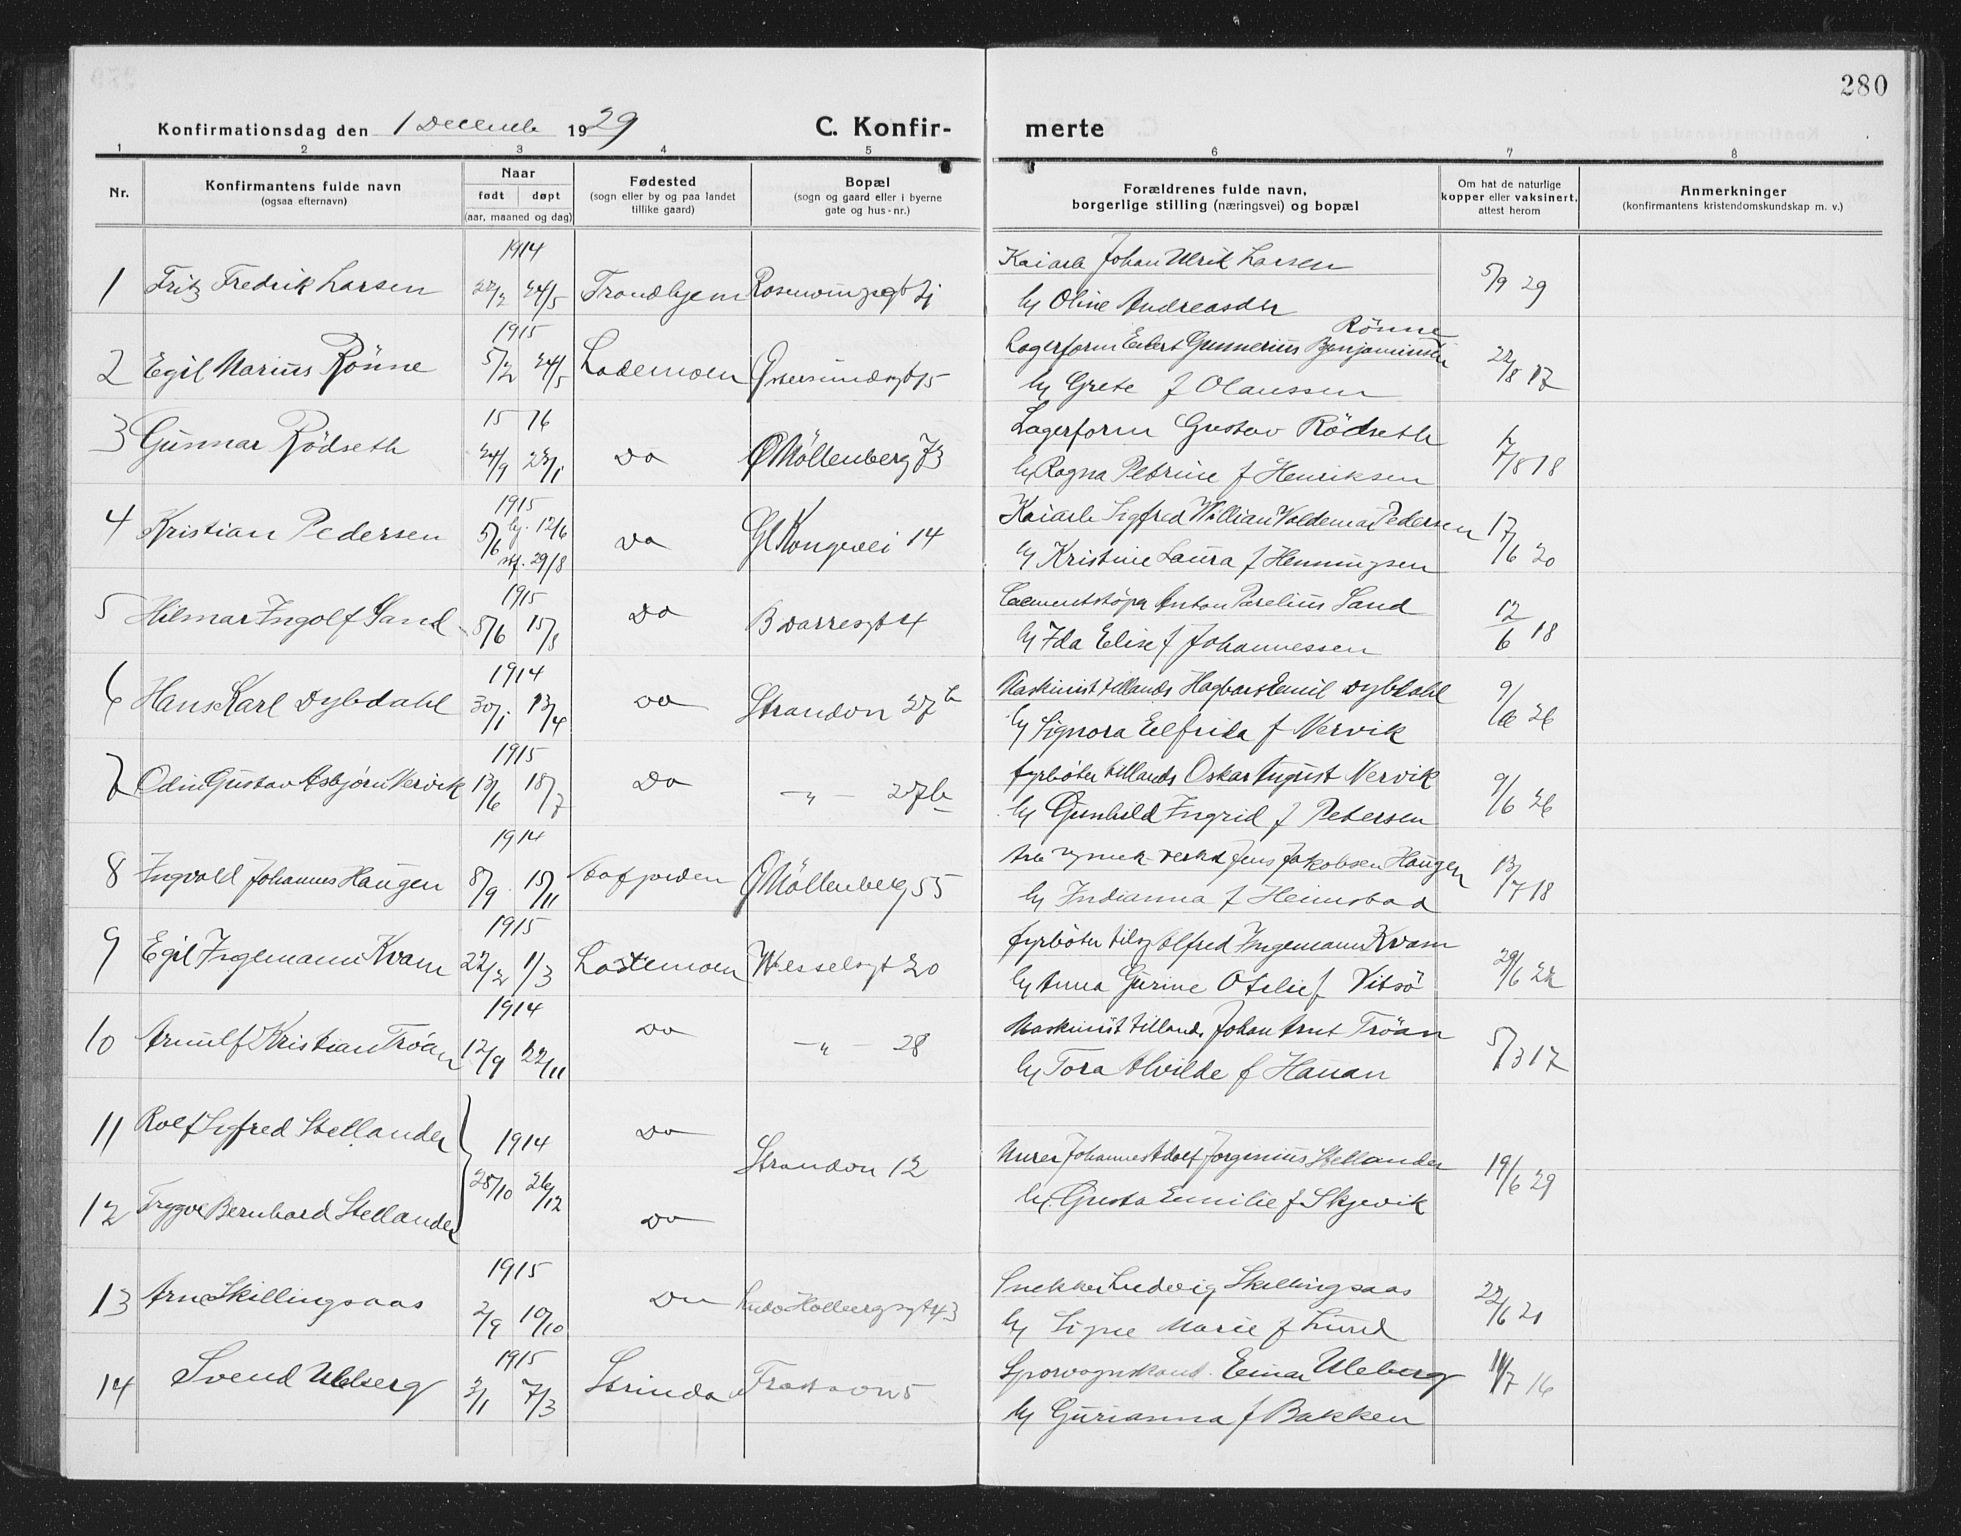 280
Konfirmationsdag den 1 December 1929 C. Konfirmerte
1 2 3 4 5 6 7 8
Nr.
Konfirmantens fulde navn
(ogsaa efternavn)
Naar
født døpt
(aar, maaned og dag)
Fødested
(sogn eller by og paa landet
tillike gaard)
Bopæl
(sogn og gaard eller i byerne
gate og hus-nr.)
Forældrenes fulde navn,
borgerlige stilling (næringsvei) og bopæl
Om hat de naturlige
kopper eller vaksinert,
attest herom
Anmerkninger
(konfirmantens kristendomskundskap m. v.)
1914 Kaiarb Johan Ulrik Larsen
1 Fritz Fredrik Larsen 22/2 24/5 Trondhjem 5/9 29
Hu Oline Andreasdtr
1915 Rönne
Lagerform Eilert Gunnerius Benjaminsen
2 Egil Marius Rönne 5/2 24/5 Lademoen Østersundsgt 15 22/8 17
Hu Grete f Olaussen
15 16 Lagerform Gustav Rödseth
3 Gunnar Rödseth 24/9 23/1 Do Ø Möllenberg 73 7/8 18
Hu Ragna Petrine f Henriksen
1915 Kaiarb Sigfred Willian Valdemar Pedersen
4 Kristian Pedersen 5/6 hj. 12/6 Do Gl Kongevei 14 17/6 20
stf. 29/8 Hu Kristine Laura f Henningsen
1915 Cementstöper Anton Parelius Sand
5 Hilmar Ingolf Sand 5/6 15/8 Do Bvarresgt 4 12/6 18
Hu Ida Elise f Johannessen
1914 Maskinist tillands Hagbart Emil Dybdahl
6 Hans Karl Dybdahl 30/1 13/4 Do Strandvn 27b 9/6 26
Hu Signora Elfrida f Nervik
1915 fyrbøter tillands Oskar August Nervik
7 Odin Gustav Asbjørn Nervik 13/6 18/7 Do -"- 27b 9/6 26
Hu Gunhild Ingrid f Petersen
1914 Jens Jakobsen Haugen
8 Ingvald Johannes Haugen 8/9 15/11 Aafjorden Ø Möllenberg 55 13/7 18
Hu Indianna f Heimstad
1915 fyrbøter tilsj Alfred Ingemann Kvam
9 Egil Ingemann Kvam 22/2 1/3 Lademoen Wesselsgt 20 29/6 22
Hu Anna Gurine Otelie f Vitsö
1914 Maskinist tillands Johan Arnt Tröan
10 Arnulf Kristian Tröan 12/9 22/11 Do -"- 28 5/3 17
Hu Tora Alvilde f Hauan
11 Rolf Sigfred Stellander Do
1914 Strandvn 12 Murer Johannes Adolf Jørginius Stellander 19/6 29
28/10 26/12
12 Trygve Bernhard Stellander Do Hu Gusta Emilie f Skjevik
1915 Snekker Ludvig Skillingsaas
13 Arne Skillingsaas 2/9 10/10 Do Ludv Holbergsgt 43 22/6 21
Hu Signe Marie f Lund
1915 Sporvognskond. Einar Uleberg
14 Svend Uleberg 2/1 7/3 Strinda 11/7 16
Hu Gurianna f Bakken